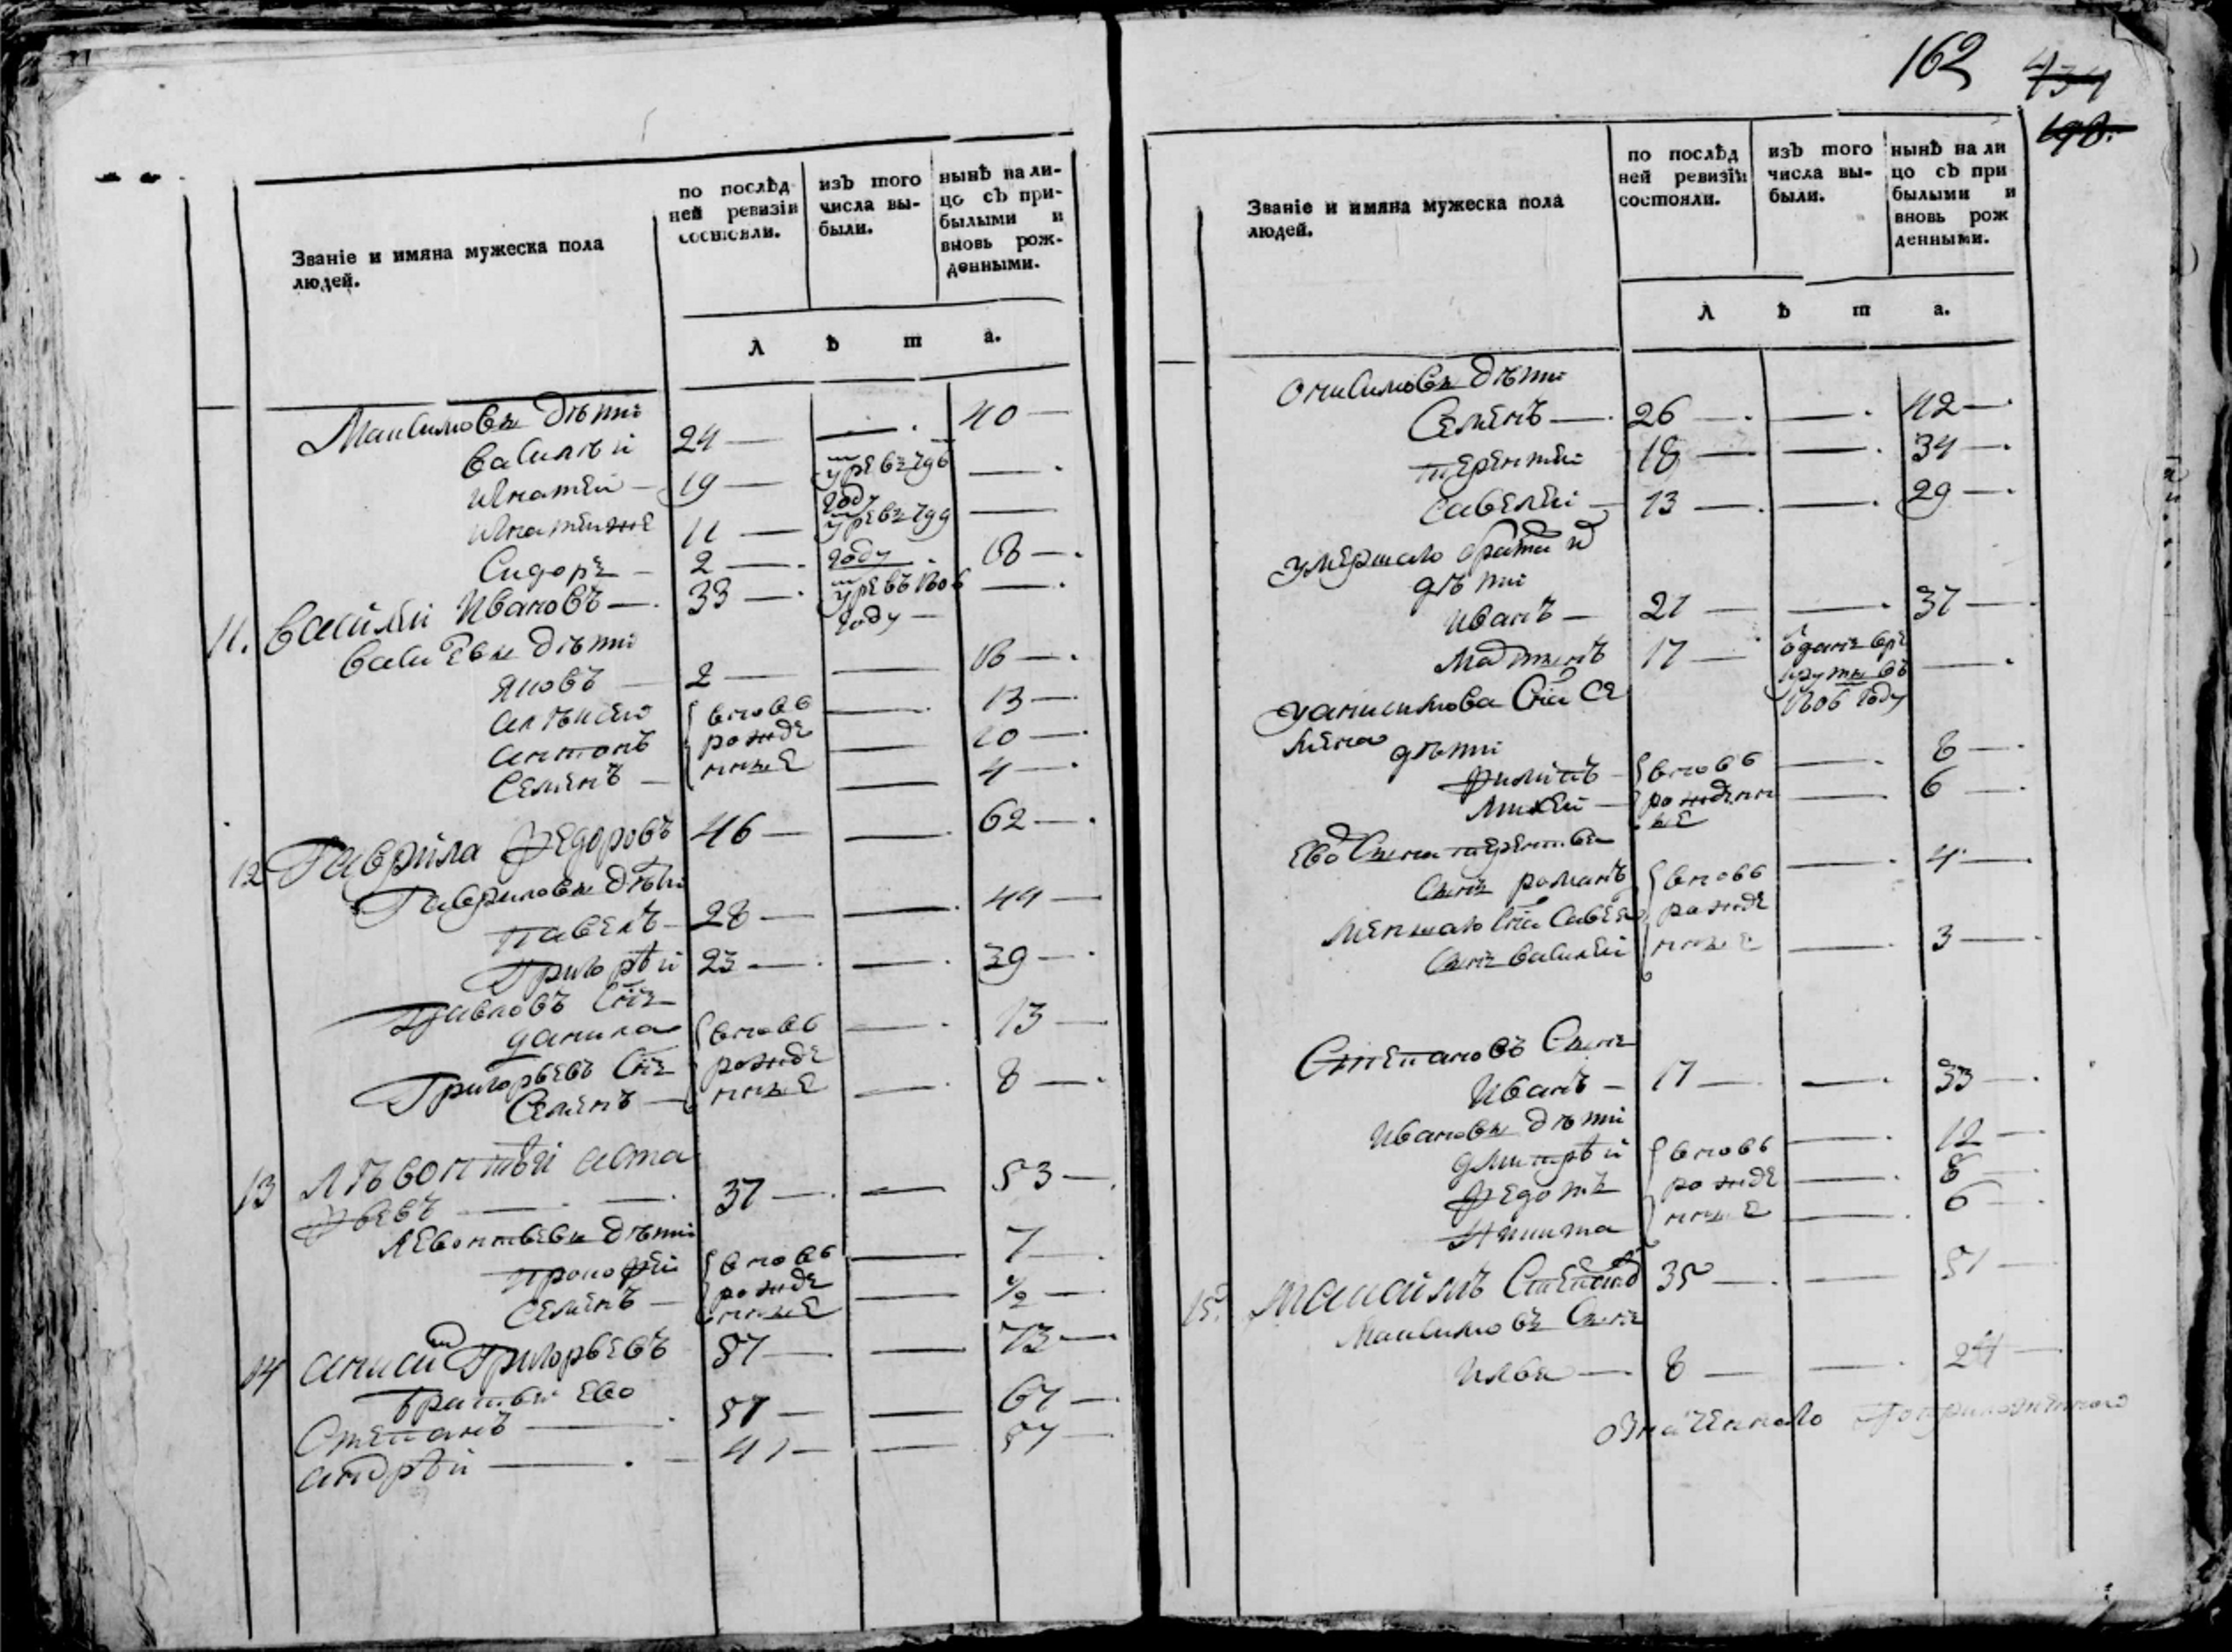 Званіе и имяна мужеска пола
людей.
по послѣд
ней ревизіи
состояли.
изъ того
числа вы-
были.
нынѣ на ли-
цо съ при-
былыми и
вновь рож-
денными.
л ѣ т а.
Максимовы дѣти
Василѣй 24 — — 40 —
Игнатей — 19 — умре въ 796 году —
Игнатей же 11 — умре въ 799 году —
Сидоръ — 2 — 18 —
11. Василѣй Ивановъ — 33 — умре въ 1806 году —
Васильевы дѣти
Яковъ — 2 — — 18 —
Алѣксѣй вновь — 13 —
Антонъ рожде — 10 —
Семенъ — нные — 4 —
12 Гаврила Федоровъ 46 — — 62 —
Гавриловы дѣти
Павелъ — 28 — — 44 —
Григорѣй 23 — — 39 —
Павловъ сынъ
Данила вновь — 13 —
Григорьевъ сынъ рожде
Семенъ — нные — 8 —
13 Лѣвонтѣй Аста
фьевъ — — 37 — — 53 —
Левонтьевы дѣти
Прокофей вновь рожде — 7 —
Семенъ — нные — 1/2 —
14 Григорьевъ 57 — — 73 —
Братьи ево
Степанъ — 51 — — 67 —
Андрѣй — 41 — — 57 —
162
Званіе и имяна мужеска пола
людей.
по послѣд
ней ревизіи
состояли.
изъ того
числа вы-
были.
нынѣ на ли
цо съ при
былыми и
вновь рож
денными.
л ѣ т а.
Онисимовы дѣти
Семенъ — 26 — — 42 —
Терентей 18 — — 34 —
Савелей — 13 — — 29 —
умершаго брата
дѣти
Иванъ — 21 — — 37 —
Мартынъ 17 — отданъ въ ре
круты въ
1806 году —
У Онисимова сына Се
мена дѣти
Филипъ — вновь — 8 —
Михей — рожденн — 6 —
ые
Ево сына Терентья
сынъ Романъ вновь — 4 —
меншаго сына Савелья рожде
сынъ Василей нные — 3 —
Степановъ сынъ
Иванъ — 17 — — 33 —
Ивановы дѣти
Дмитрѣй вновь — 12 —
Федотъ рожде — 8 —
Никита нные — 6 —
15. Максимъ Степановъ 35 — — 51 —
Максимовъ сынъ
Илья — 8 — — 24 —
Означеннаго